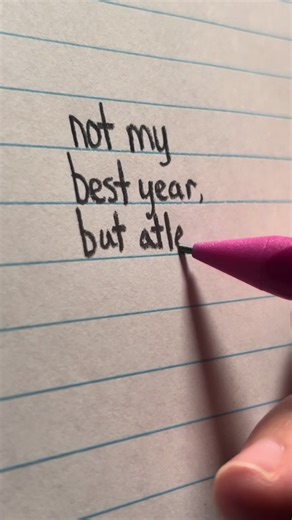 not my
best year,
but atle